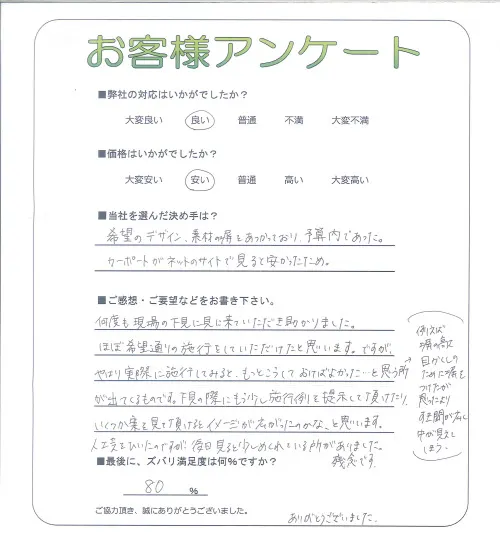 お客様アンケート
■弊社の対応はいかがでしたか?
大変良い 良い 普通 不満 大変不満
■価格はいかがでしたか?
大変安い 安い 普通 高い 大変高い
■当社を選んだ決め手は?
希望のデザイン、素材の塀をあつかっており、予算内であった。
カーポートがネットのサイトで見ると安かったため。
■ご感想・ご要望などをお書き下さい。
何度も現場の下見に見に来ていただき助かりました。
ほぼ希望通りの施行をしていただけたと思います。ですが、
やはり実際に施行してみると、もっとこうしておけばよかった…と思う所
が出てくるものです。下見の際にもう少し施行例を提示して頂けたり、
いくつか案を見て頂けるとイメージが広がったのかな、と思います。
人工芝をひいたのですが、後日見ると少しめくれている所がありました。
残念です。
例えば
塀の高
目かくしの
ために塀を
つけたが
思ったより
す き間が広く
中が見えて
しまう。
■最後に、ズバリ満足度は何%ですか?
80 %
ご協力頂き、誠にありがとうございました。
ありがとうございました。